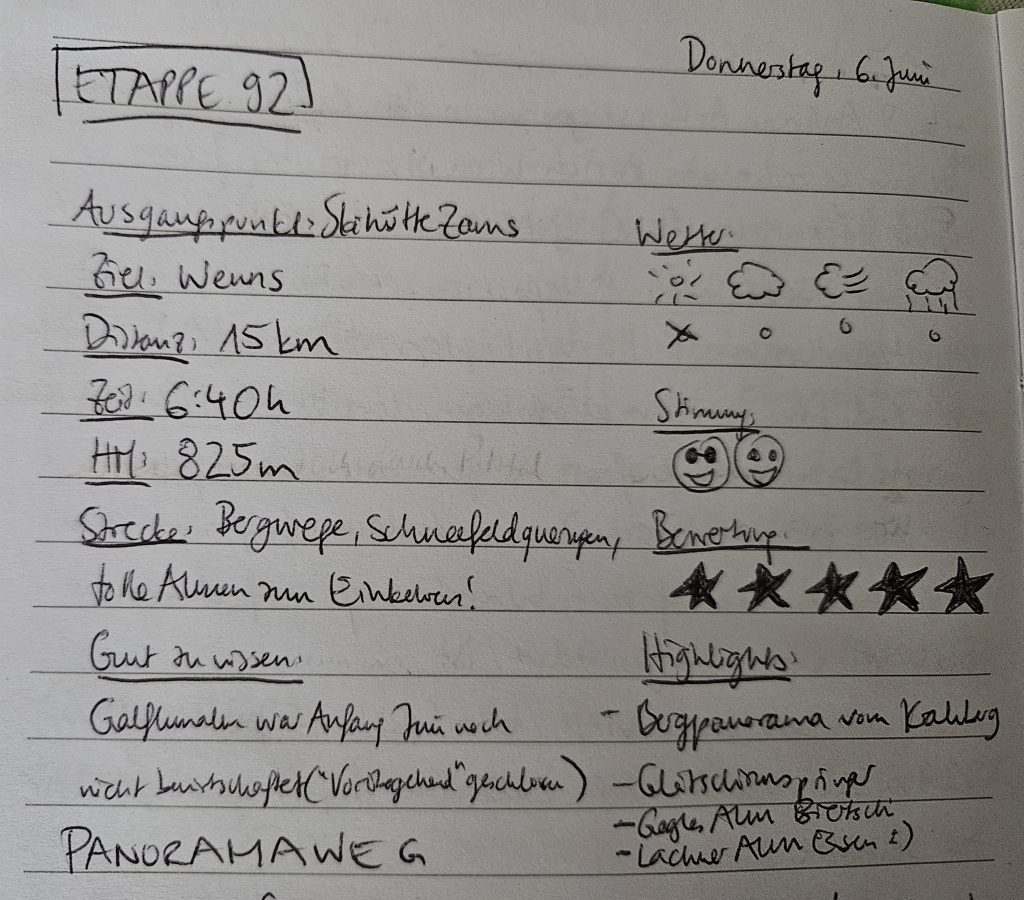 Donnerstag, 6. Juni
ETAPPE 92
Ausgangspunkt: Skihütte Zams
Ziel: Wenns
Distanz: 15 km
Zeit: 6:40h
HM: 825m
Strecke: Bergwege, Schneefeldquerungen,
tolle Almen zum Einkehren!
Gut zu wissen:
Galflunalm war Anfang Juni noch
nicht bewirtschaftet ("Vorübergehend" geschlossen)
PANORAMAWEG
Wetter:
Stimmung:
Bewertung:
Highlights:
- Bergpanorama vom
- Gletscherausspänger
- Gogles Alm
- Lachner Alm Essen :)